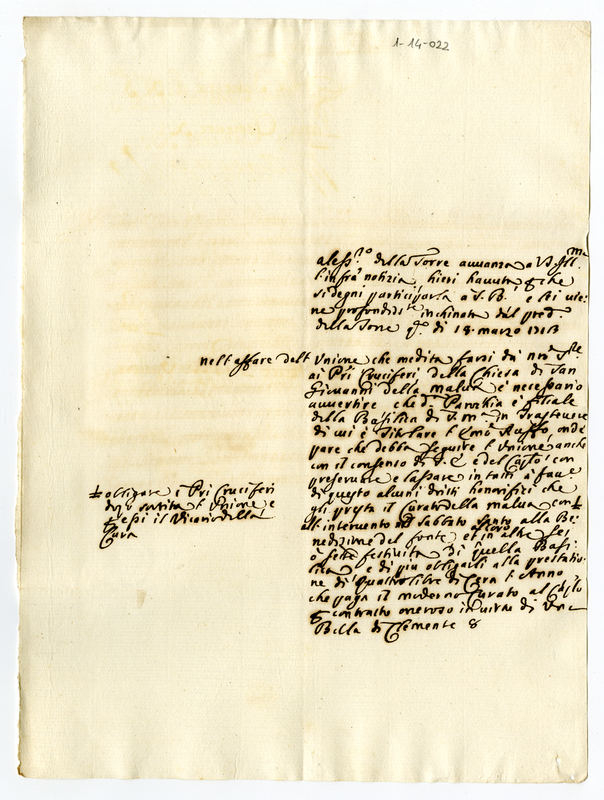 1-14-022
Aless.ro della Torre avvanza a V.S. Ill.ma
l'infra notizia, hieri havuta che
si degni participarla a S.B. e lei
ne profondis.te inchinata dal pred.
della Torre q.o di 18. marzo 1713
nell'affare dell'Unione che medita farsi da nro Sig.re
ai Pri Cruciferi della Chiesa di San
Giovanni della malva è necessario
avvertire che d.a Parochia è filiale
della Basilica di S. M.a in Trastevere
di cui è Titolare l'Emo Ruffo, onde
pare che debba seguire l'Unione anche
con il consenso di S. E. e del Caplo, con
preservare e lassare intatti a fav.e
di questo alcuni dritti honorifici che
gli presta il Curato della malva con
all'intervento nel Sabbato Santo alla Be
nedizione del fonte, et in altre sei
ò sette festività di quella Basi
lica, e di più obligarli alla prestatio
ne di quattro libre di Cera l'Anno
che paga il moderno Curato al Caplo
contratto oneroso in virtù di Una
Bolla di Clemente 8
obligare i Pri Cruciferi
seguita l'Unione e
essi il Vicario della
Cura